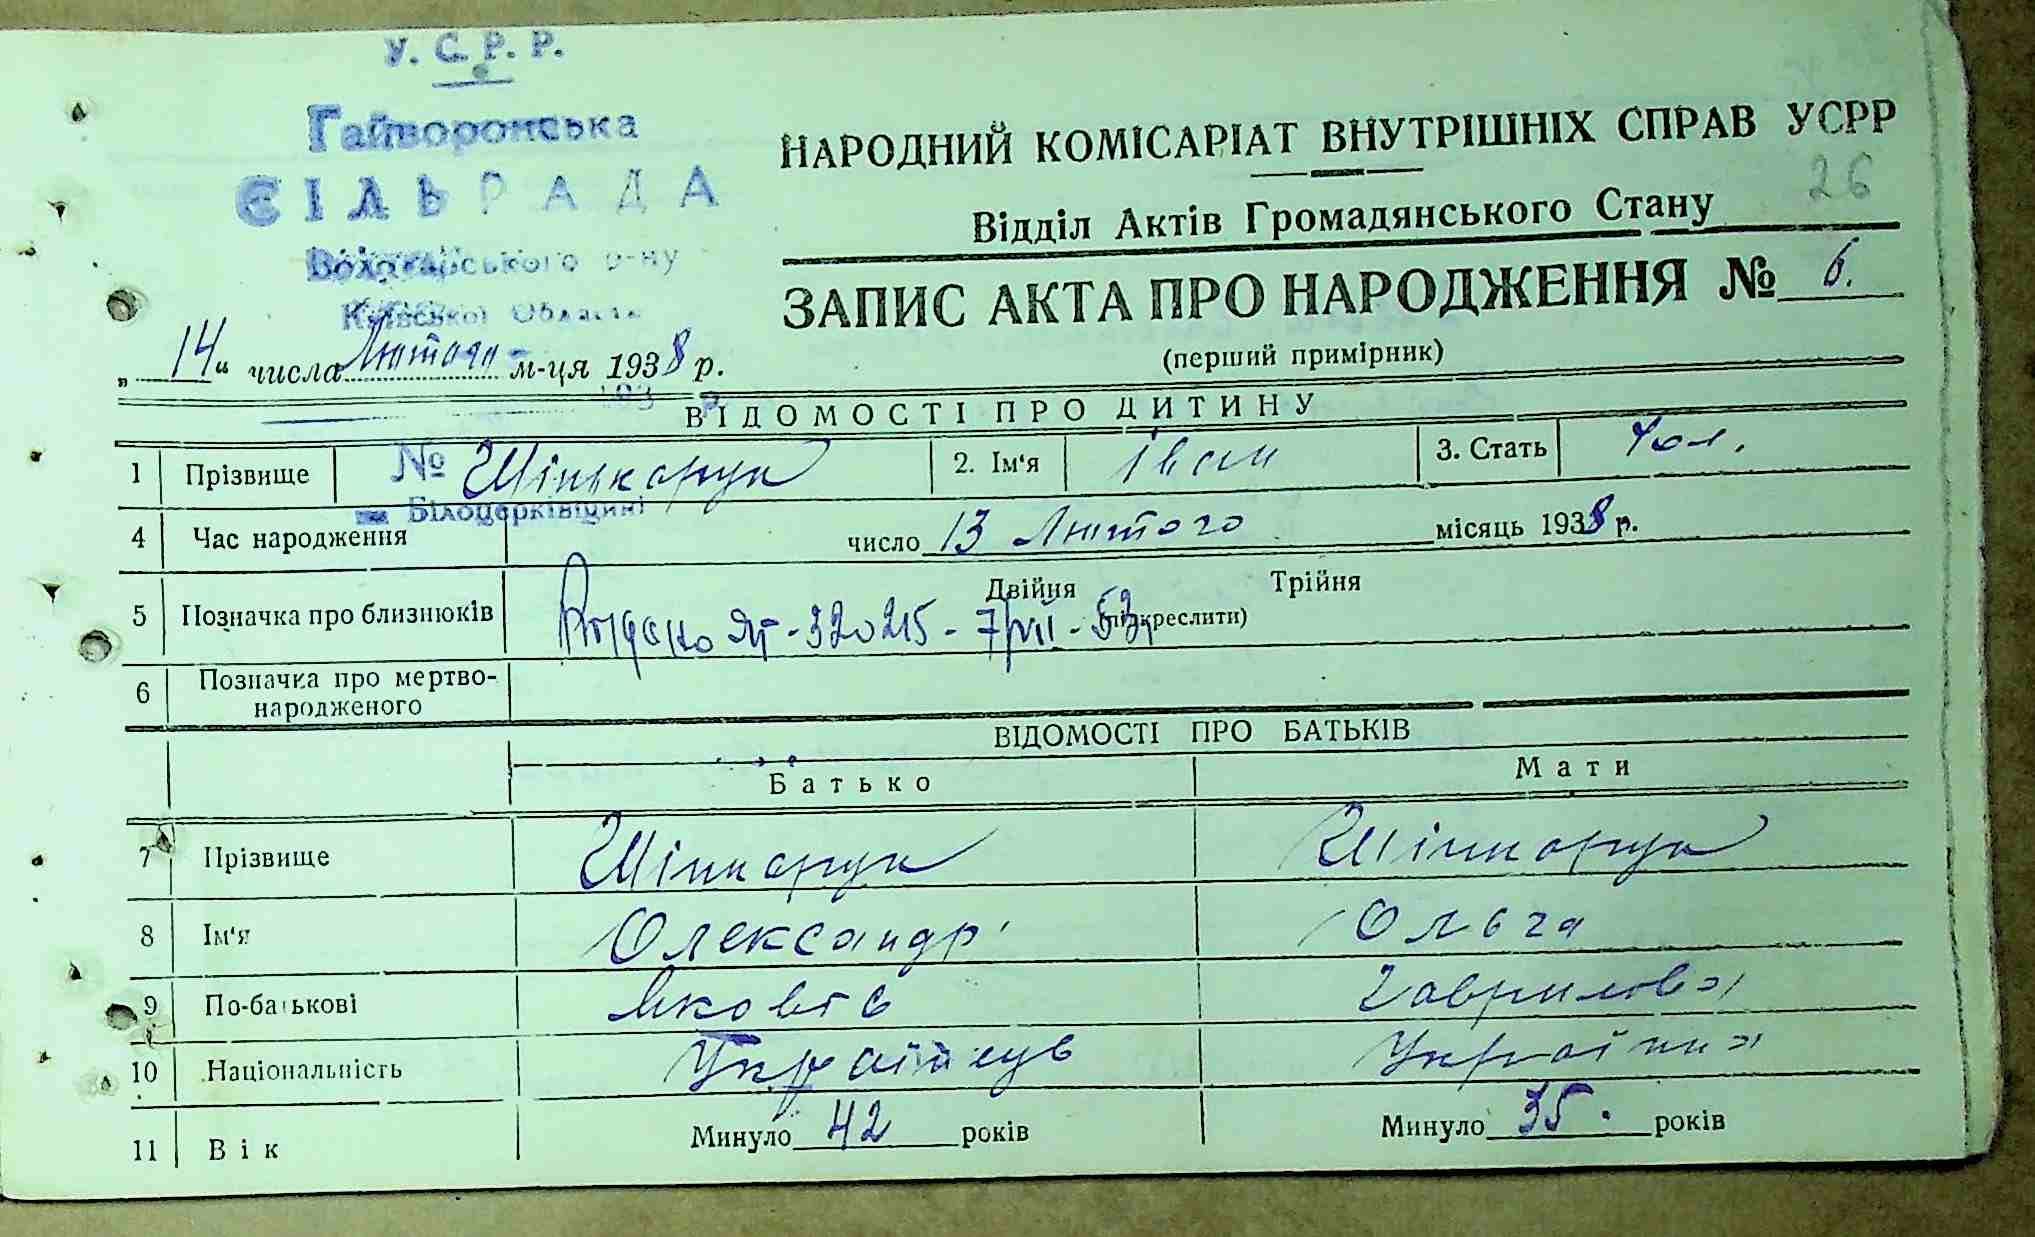 У. С. Р. Р.
Гайворонська
СІЛЬРАДА
Володарського р-ну
Київської Області
НАРОДНИЙ КОМІСАРІАТ ВНУТРІШНІХ СПРАВ УСРР
26
Відділ Актів Громадянського Стану
ЗАПИС АКТА ПРО НАРОДЖЕННЯ № 6.
(перший примірник)
„14“ числа Лютого м-ця 1938 р.
193 р.
ВІДОМОСТІ ПРО ДИТИНУ
1 Прізвище № Шінькарук 2. Ім'я Іван 3. Стать Чол.
Білоцерківщині
4 Час народження число 13 Лютого місяць 1938 р.
5 Позначка про близнюків Двійня Трійня
(підкреслити)
320215 - 7/VII - 53
6 Позначка про мертво-
народженого
ВІДОМОСТІ ПРО БАТЬКІВ
Батько Мати
7 Прізвище Шінкарук Шінкарук
8 Ім'я Олександр Ольга
9 По-батькові Гаврилова
10 Національність Українець
11 Вік Минуло 42 років Минуло 35. років